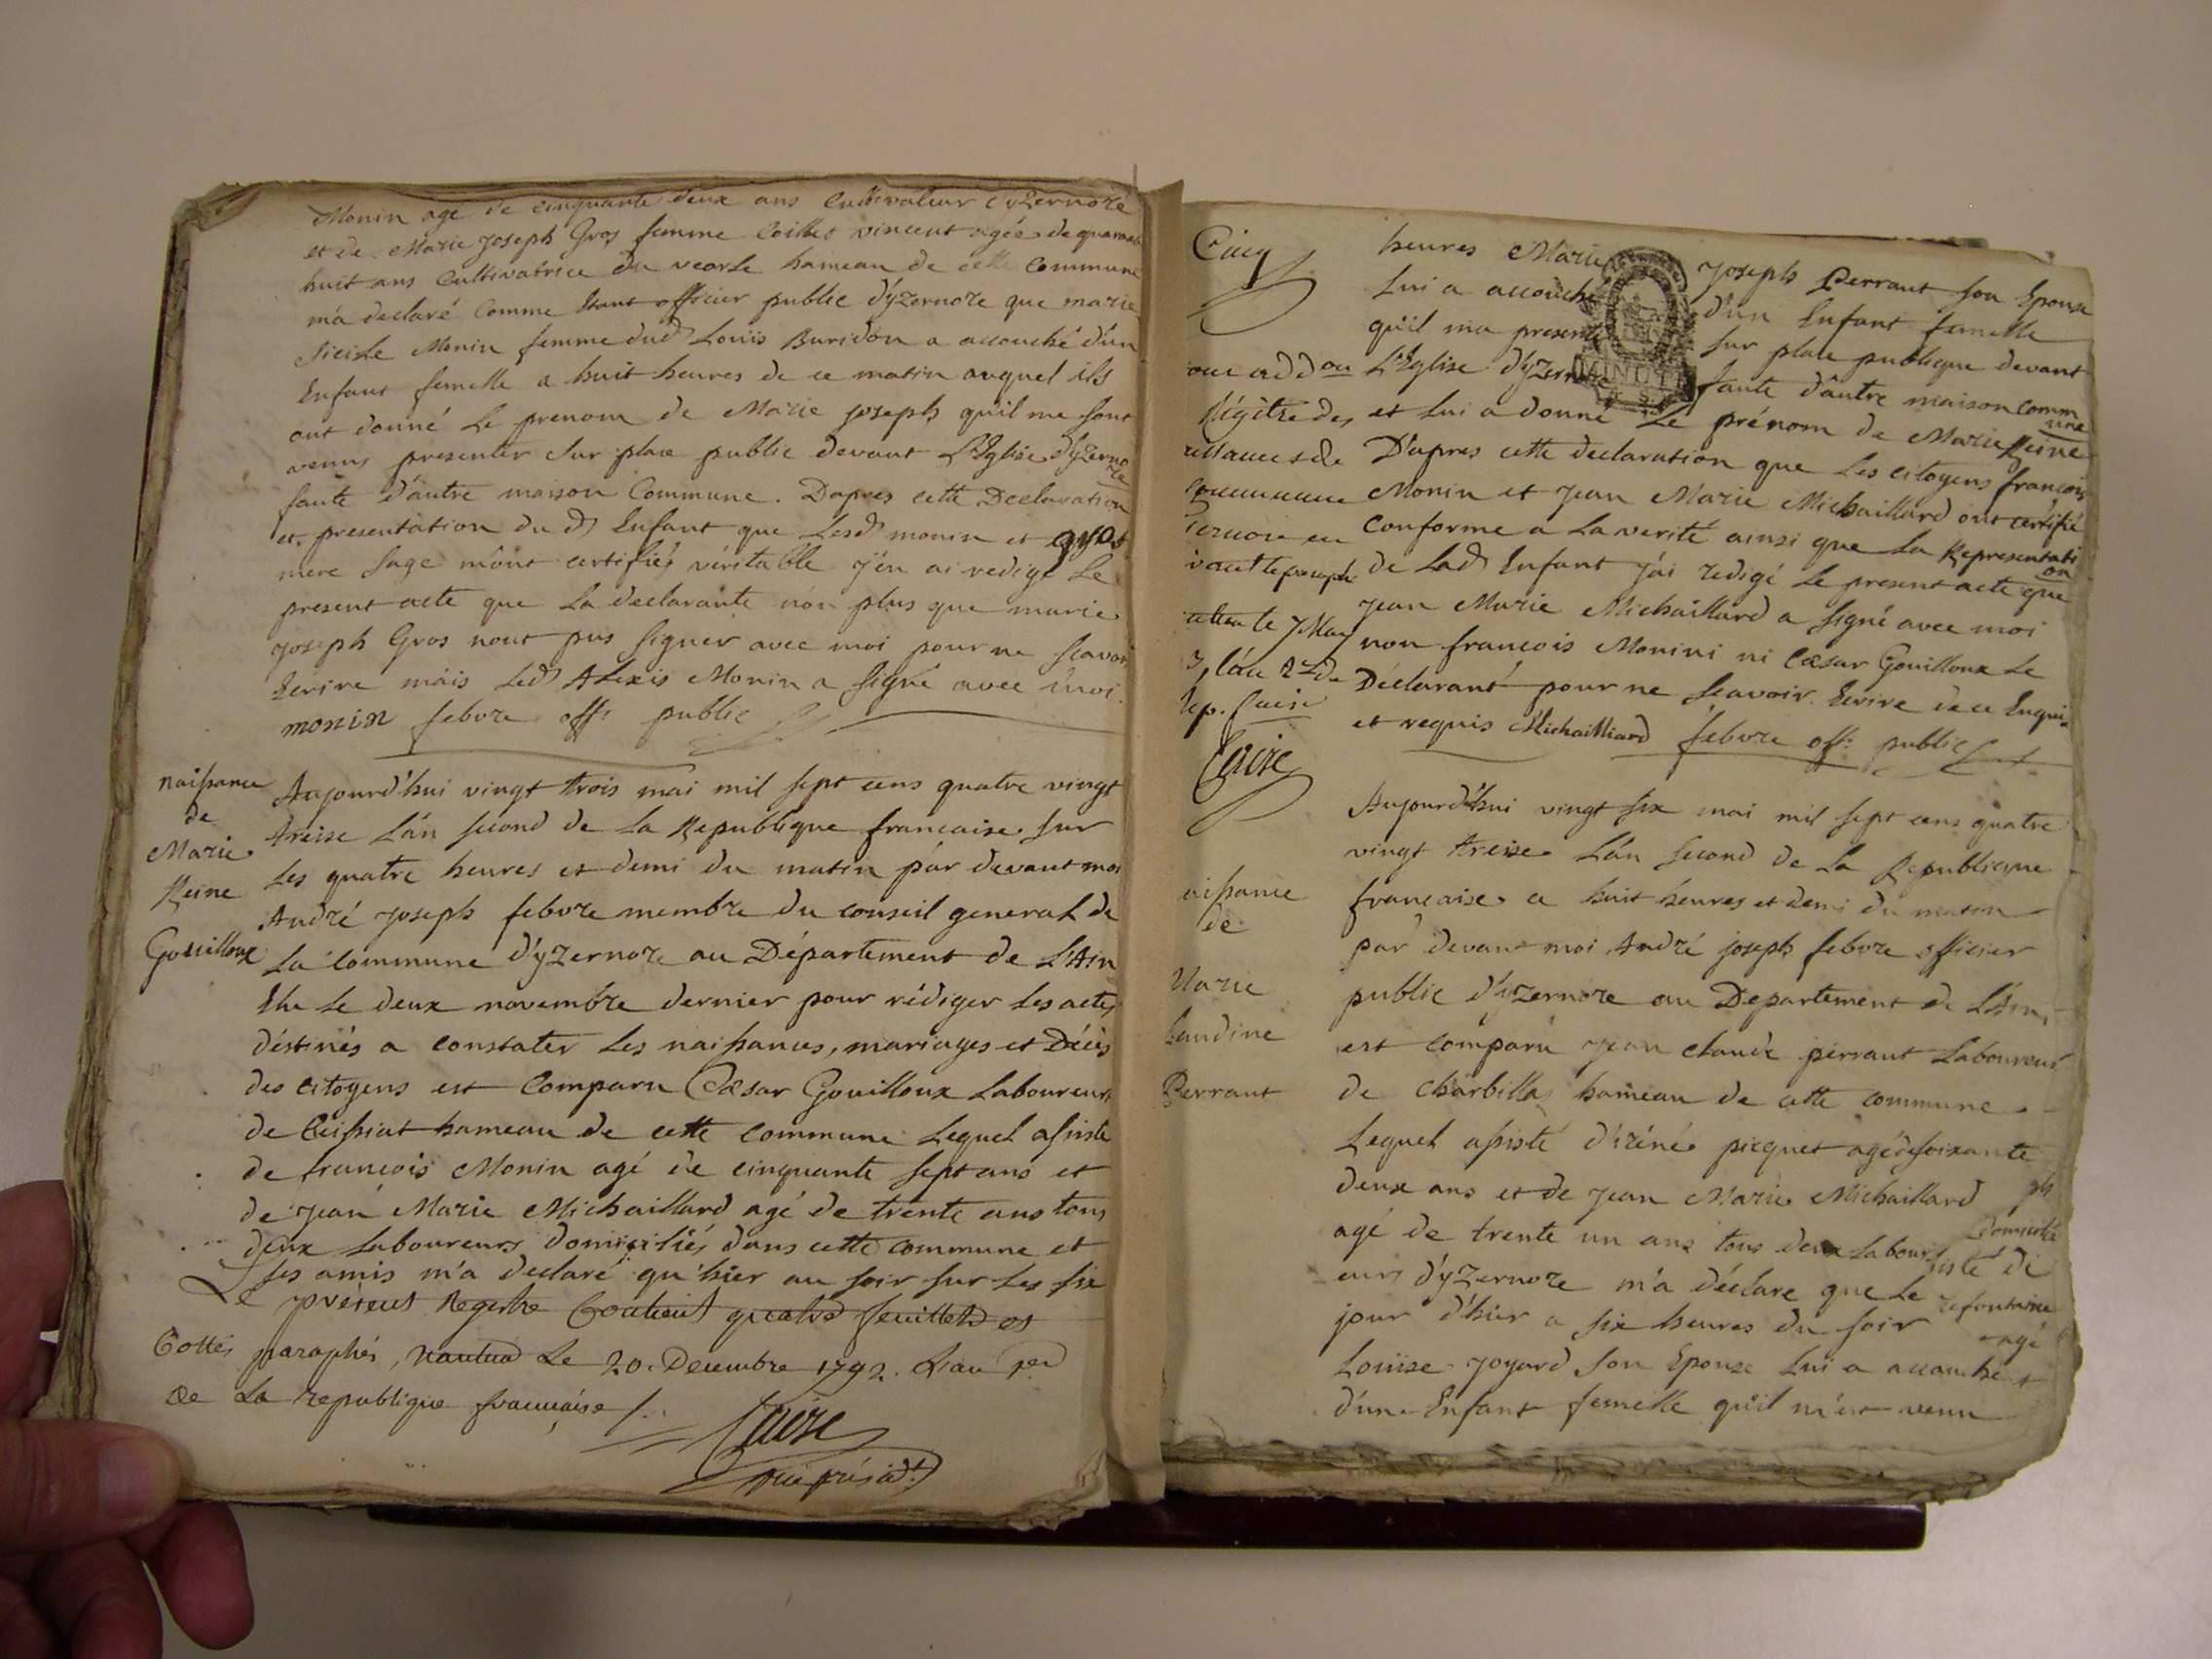 Monin agé de cinquante deux ans Cultivateur d'yzernore
et de Marie joseph Gros femme Coillet vincent agée de quarante
huit ans Cultivatrice du hameau de cette Commune
m'a declaré Comme officier public d'yzernore que marie
Monin femme dud Louis Buridon a accouché d'un
Enfant femelle a huit heures de ce matin auquel ils
ont donné Le prenom de Marie joseph qu'il me sont
venus presenter sur place public devant L'Eglise d'yzerno
re
faute d'autre maison Commune. D'apres cette Declaration
et presentation du d Enfant que Lesd monin et gros
mere sage m'ont certifiés véritable j'en ai redigé Le
present acte que La declarante non plus que marie
joseph Gros n'ont pus signer avec moi pour ne scavoir
Ecrire mais Led Alexis Monin a signé avec moi
monin febvre off. public
naissance
de
Marie
Reine
Gouilloux
Aujourd'hui vingt trois mai mil sept cens quatre vingt
treise L'an second de La Republique francaise sur
Les quatre heures et demi du matin par devant moi
André joseph febvre membre du conseil general de
La Commune d'yzernore au Département de L'Ain
Elu Le deux novembre dernier pour rédiger Les actes
déstinés a constater Les naissances, mariages et Décès
des citoyens est Comparu Cæsar Gouilloux Laboureur
de Ceissiat hameau de cette commune Lequel assisté
de francois Monin agé de cinquante sept ans et
de jean Marie Michaillard agé de trente ans tous
deux Laboureurs domiciliés dans cette commune et
ses amis m'a declaré qu'hier au soir sur Les six
Le présent Registre Contient quatre feuillets
Cottés paraphés, Nantua Le 20. Decembre 1792. L'an 1er
de La republique francaise /.
president
Cinq
heures Marie joseph Perraut son Epouse
Lui a accouché d'un Enfant femelle
qu'il m'a presenté sur place publique devant
L'Eglise d'yzernore faute d'autre maison comm
une
et Lui a donné Le prénom de Marie Reine
D'apres cette declaration que Les citoyens francois
Monin et jean Marie Michaillard ont certifié
Conforme a La verité ainsi que La Representati
on
de Lad Enfant j'ai redigé Le present acte que
jean Marie Michaillard a signé avec moi
non francois Monin ni Cæsar Gouilloux Le
Déclarant pour ne scavoir Ecrire de ce Enquis
et requis Michailliard febvre off. public
MINUTE
aissance
de
Marie
laudine
Perraut
Aujourd'hui vingt six mai mil sept cens quatre
vingt treise L'an second de La Republique
francaise a huit heures et demi du matin
par devant moi André joseph febvre officier
public d'yzernore au Departement de L'Ain
est comparu jean claude perraut Laboureur
de Charbilla hameau de cette commune
Lequel assisté d'iréné picquet agé de soixante
deux ans et de jean Marie Michaillard
agé de trente un ans tous deux Labour
eurs d'yzernore m'a déclare que Le
jour d'hier a six heures du soir
Louise joyard son Epouse Lui a accouché
d'une Enfant femelle qu'il m'est venu